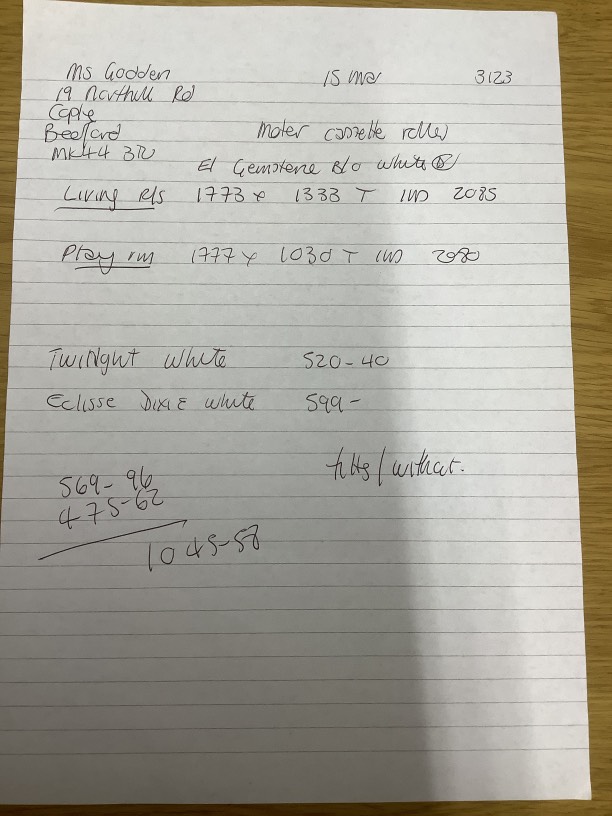 Ms Godden 15 Mar 3123
19 Northill Rd
Cople
Bedford
MK44 3TU
Moter cassette roller
El Gemstone B/O white
Living R/s 1773 x 1333 T 1WD 2085
Play rm 1777 x 1030 T 1WD 2080
Twilight white 520-40
Eclisse Dixie white 599-
569-96
475-62
1045-58